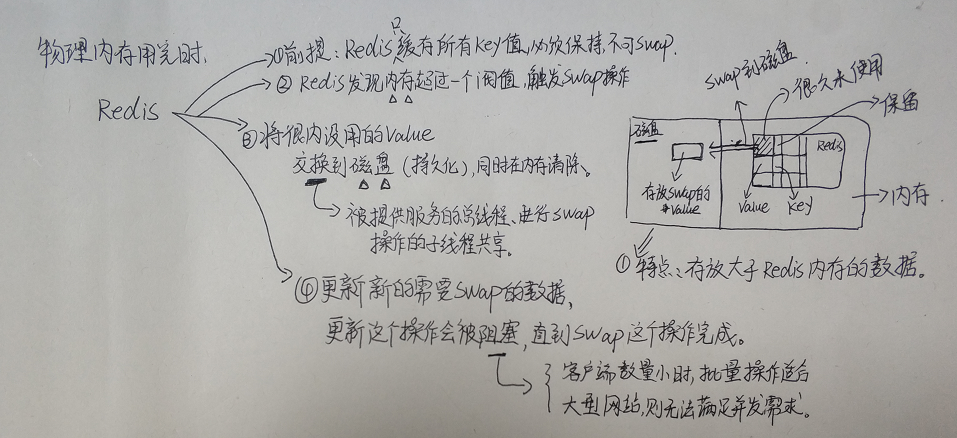 物理内存用完时.
Redis
①前提：Redis只缓存所有Key值,必须保持,不可swap.
②Redis发现内存起过一个阈值,触发swap操作
③将很内没用的Value
交换到磁盘(持久化),同时在内存清除。
被提供服务的总线程、进行swap
操作的子线程共享。
④更新新的需要swap的数据,
更新这个操作会被阻塞,直到swap这个操作完成。
客户端数量小时,批量操作适合
大型网站,则无法满足并发需求。
swap到磁盘.
很久未使用
保留
磁盘
Redis
存放swap的
Value
Value
Key
内存.
①特点：存放大于Redis内存的数据。